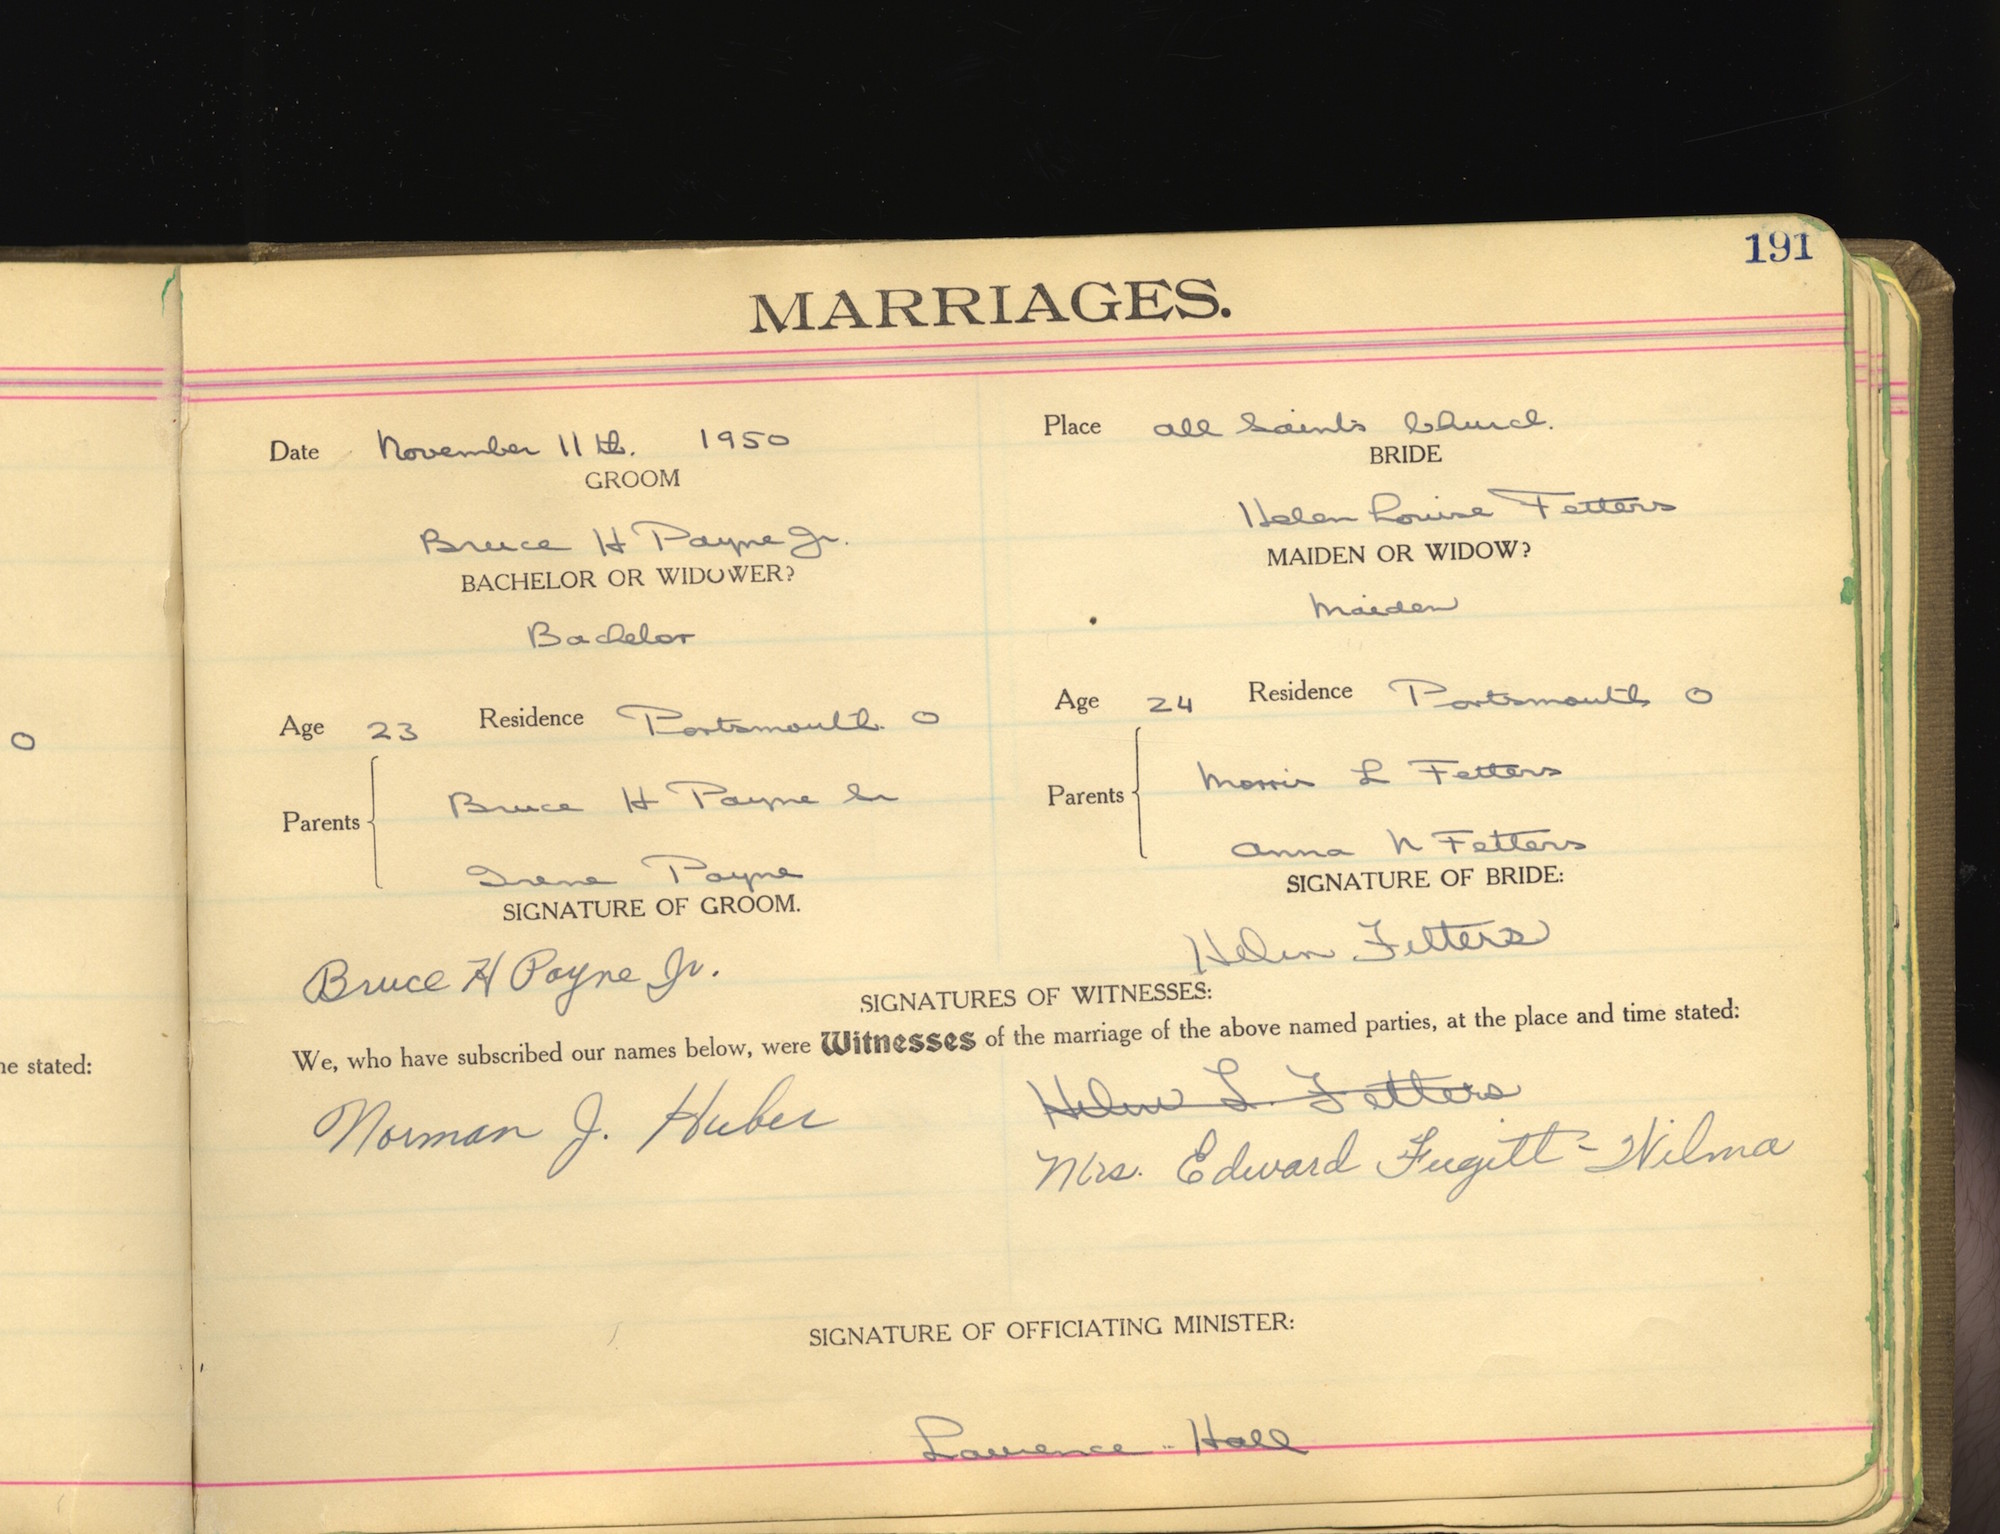 191
MARRIAGES.
Date November 11th. 1950
Place All Saints Church.
GROOM
BRIDE
Bruce H Payne Jr.
Helen Louise Fetters
BACHELOR OR WIDOWER?
MAIDEN OR WIDOW?
Bachelor
Maiden
Age 23 Residence Portsmouth O
Age 24 Residence Portsmouth O
Parents
Bruce H Payne Sr
Irene Payne
Parents
Morris L Fetters
Anna N Fetters
SIGNATURE OF GROOM.
SIGNATURE OF BRIDE:
Bruce H Payne Jr.
Helen Fetters
SIGNATURES OF WITNESSES:
We, who have subscribed our names below, were Witnesses of the marriage of the above named parties, at the place and time stated:
Norman J. Huber
Helen L. Fetters
Mrs. Edward Fugitt - Wilma
SIGNATURE OF OFFICIATING MINISTER:
Lawrence Hall
O
ne stated: